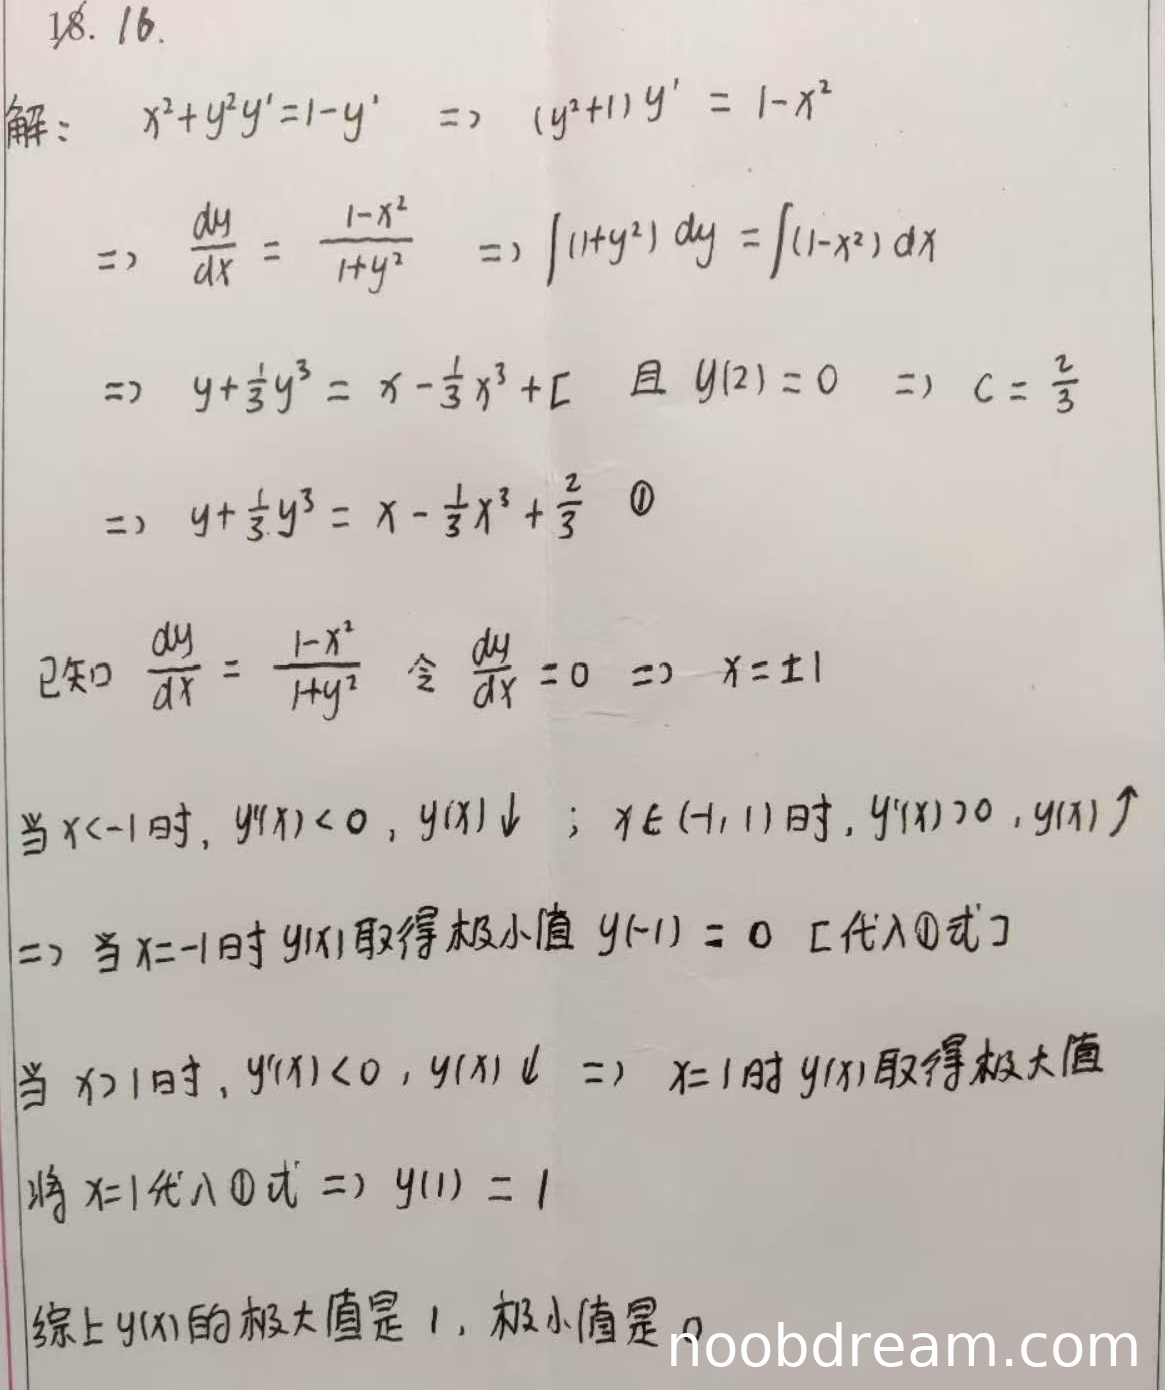 18. 16.
解： x²+y²y'=1-y' => (y²+1)y' = 1-x²
=> dy/dx = (1-x²)/(1+y²) => ∫(1+y²) dy = ∫(1-x²) dx
=> y+1/3y³ = x-1/3x³+C 且 y(2)=0 => C=2/3
=> y+1/3y³ = x-1/3x³+2/3 ①
已知 dy/dx = (1-x²)/(1+y²) 令 dy/dx =0 => x=±1
当x<-1时, y'(x)<0, y(x)↓ ; x∈(-1,1)时, y'(x)>0, y(x)↑
=> 当x=-1时y(x)取得极小值 y(-1)=0 [代入①式]
当 x>1时, y'(x)<0, y(x)↓ => x=1时y(x)取得极大值
将 x=1代入①式 => y(1)=1
综上y(x)的极大值是1, 极小值是0
noobdream.com